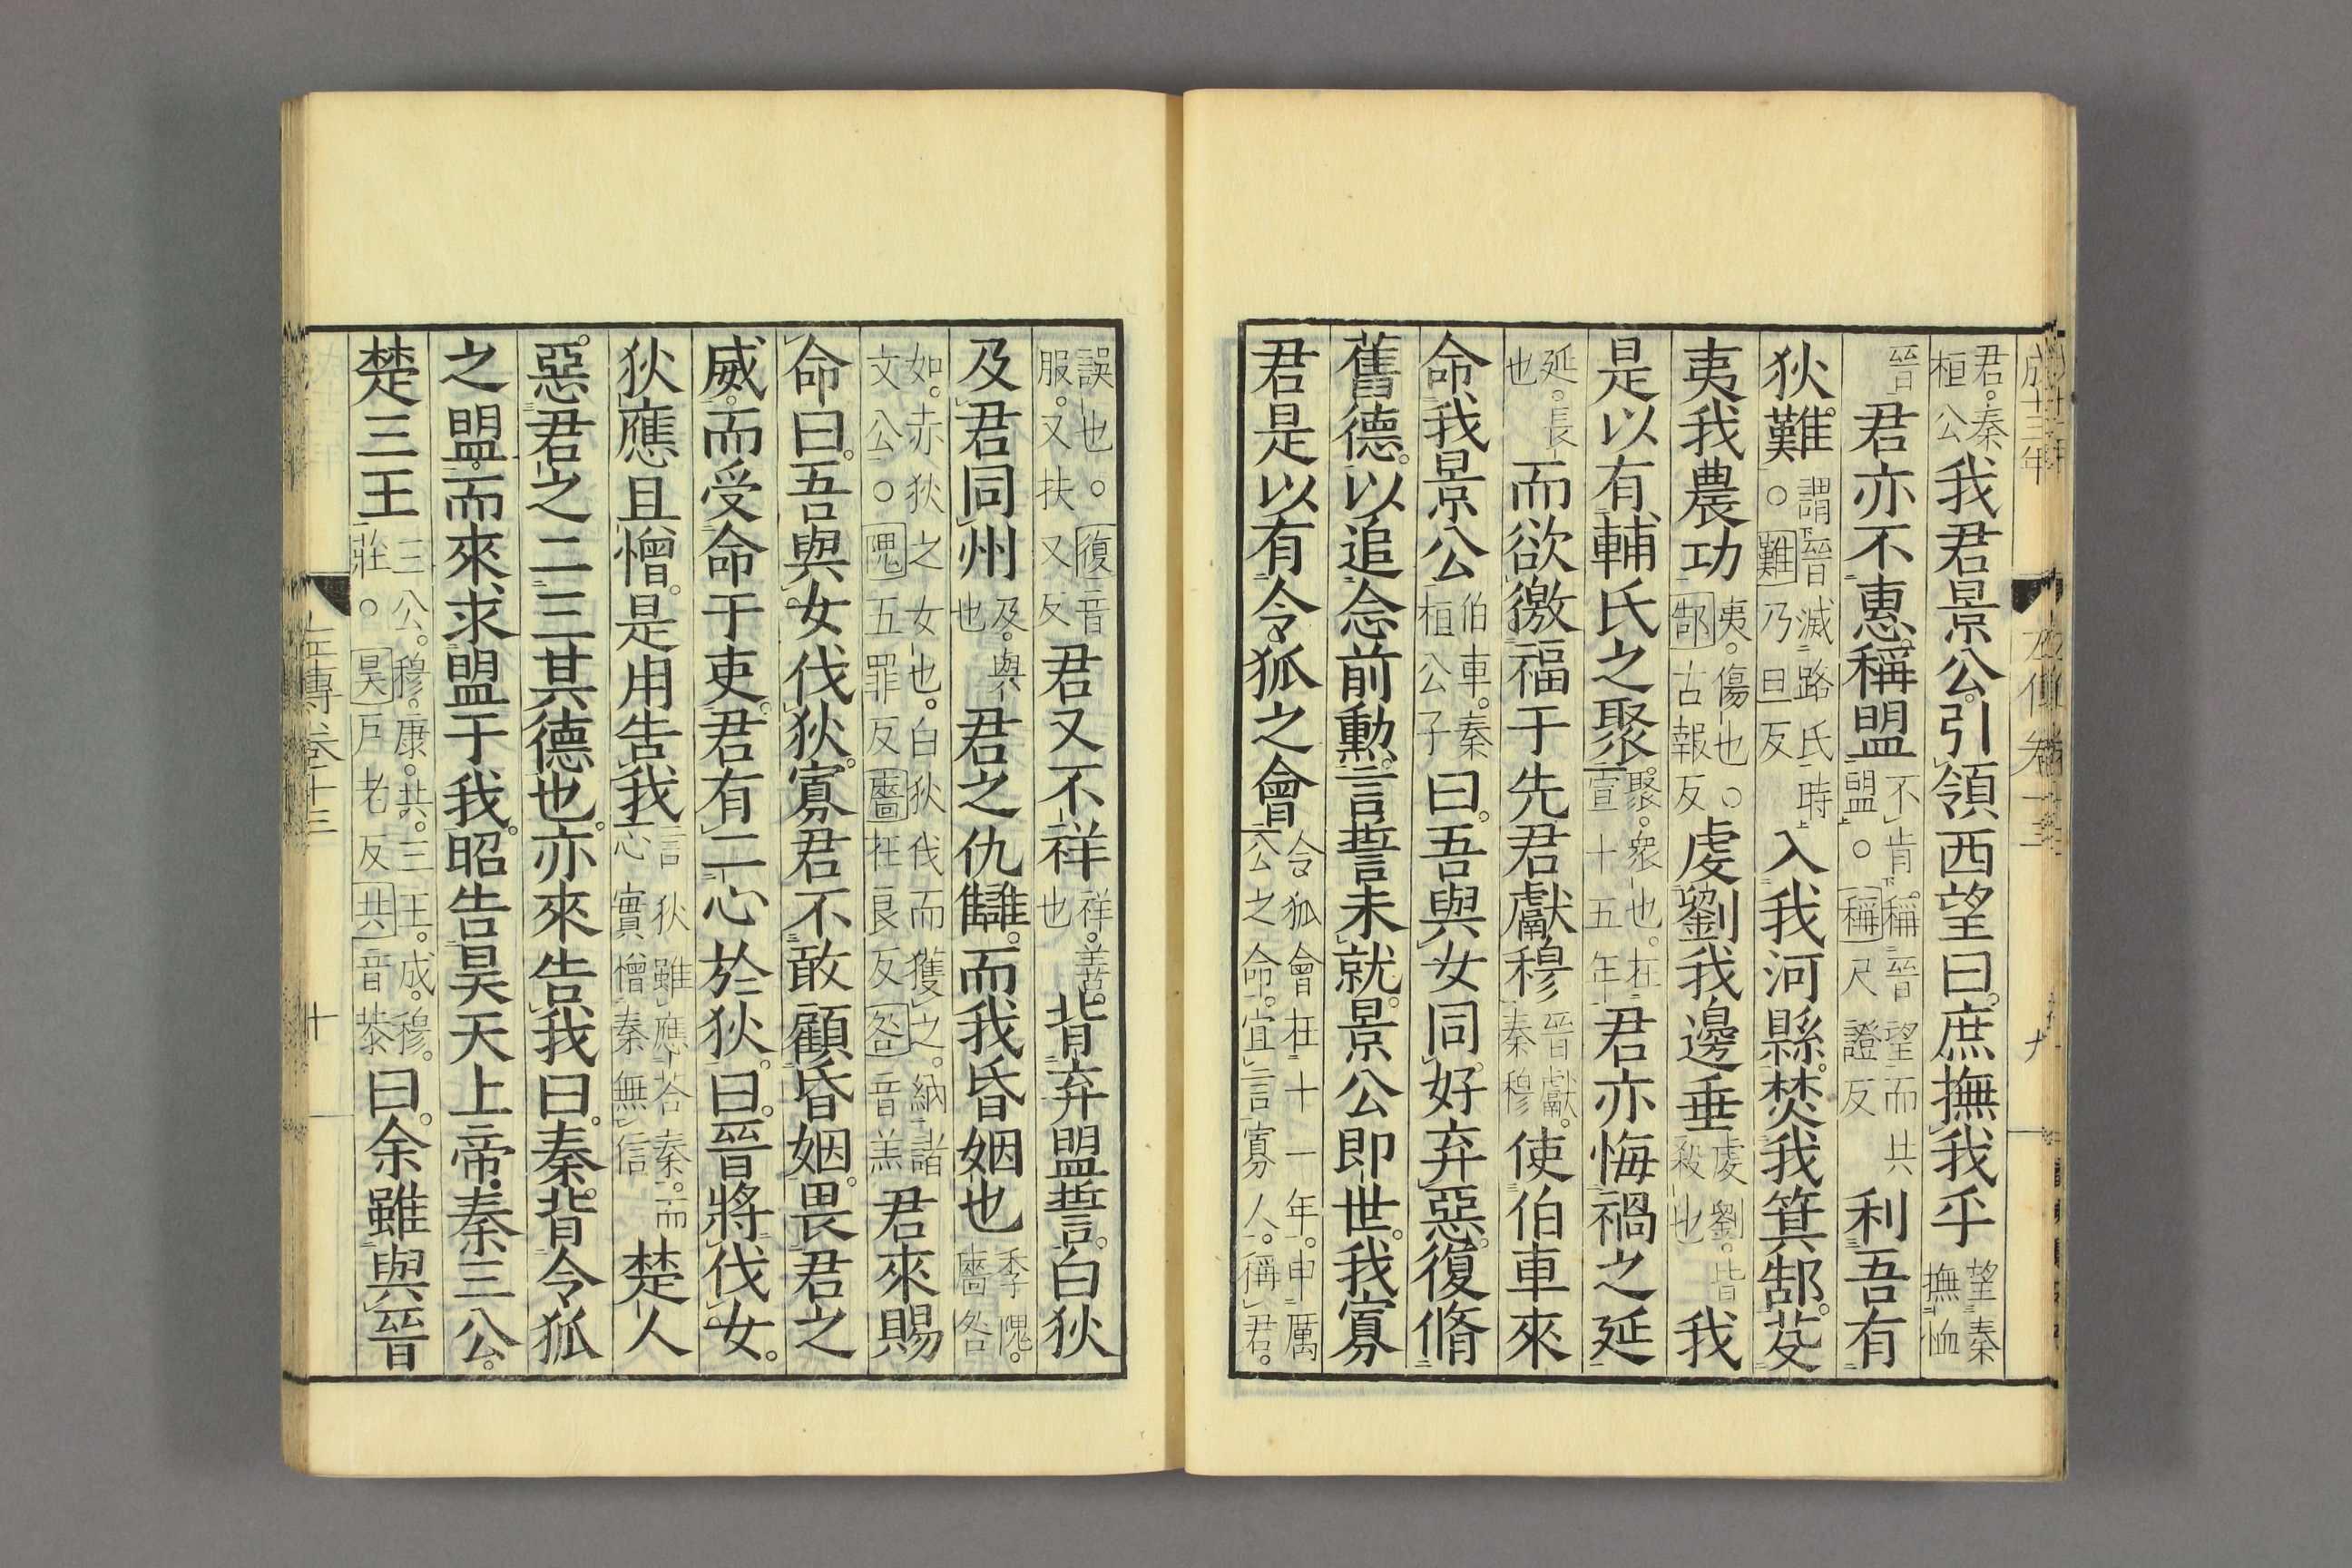 成十三年
君。秦桓公我君景公。引領西望曰。庶撫我乎望秦撫恤
晉君亦不惠。稱盟不肯。稱晉望而共盟。○稱尺證反利吾有
狄難。謂晉滅路氏時○難乃旦反入我河縣。焚我箕郜。芟
夷我農功夷。傷也。○郜古報反虔劉我邊垂虔劉。皆殺也我
是以有輔氏之聚。聚。衆也。在宣十五年君亦悔禍之延
延。長也而欲徼福于先君獻穆晉獻。秦穆使伯車來
命我景公伯車。秦桓公子曰。吾與女同好弃惡。復脩
舊德。以追念前勳。言誓未就。景公即世。我寡
君是以有令狐之會令狐會在十一年。申厲公之命。宜言寡人。稱君。
誤也。○復音服。又扶又反君又不祥祥。善也背弃盟誓。白狄
及君同州及。與也君之仇讎。而我昏姻也季隗。廧咎
如。赤狄之女也。白狄伐而獲之。納諸文公○隗五罪反廧在良反咎音羔君來賜
命曰。吾與女伐狄。寡君不敢顧昏姻。畏君之
威。而受命于吏。君有二心於狄。曰。晉將伐女。
狄應且憎。是用告我言狄雖應荅秦。而心實憎秦無信楚人
惡。君之二三其德也。亦來告我曰。秦背令狐
之盟。而來求盟于我。昭告昊天上帝。秦三公。
楚三王三公。穆。康。共。三王。成。穆。莊。○昊戶老反共音恭曰。余雖與晉
左傳卷十三
十